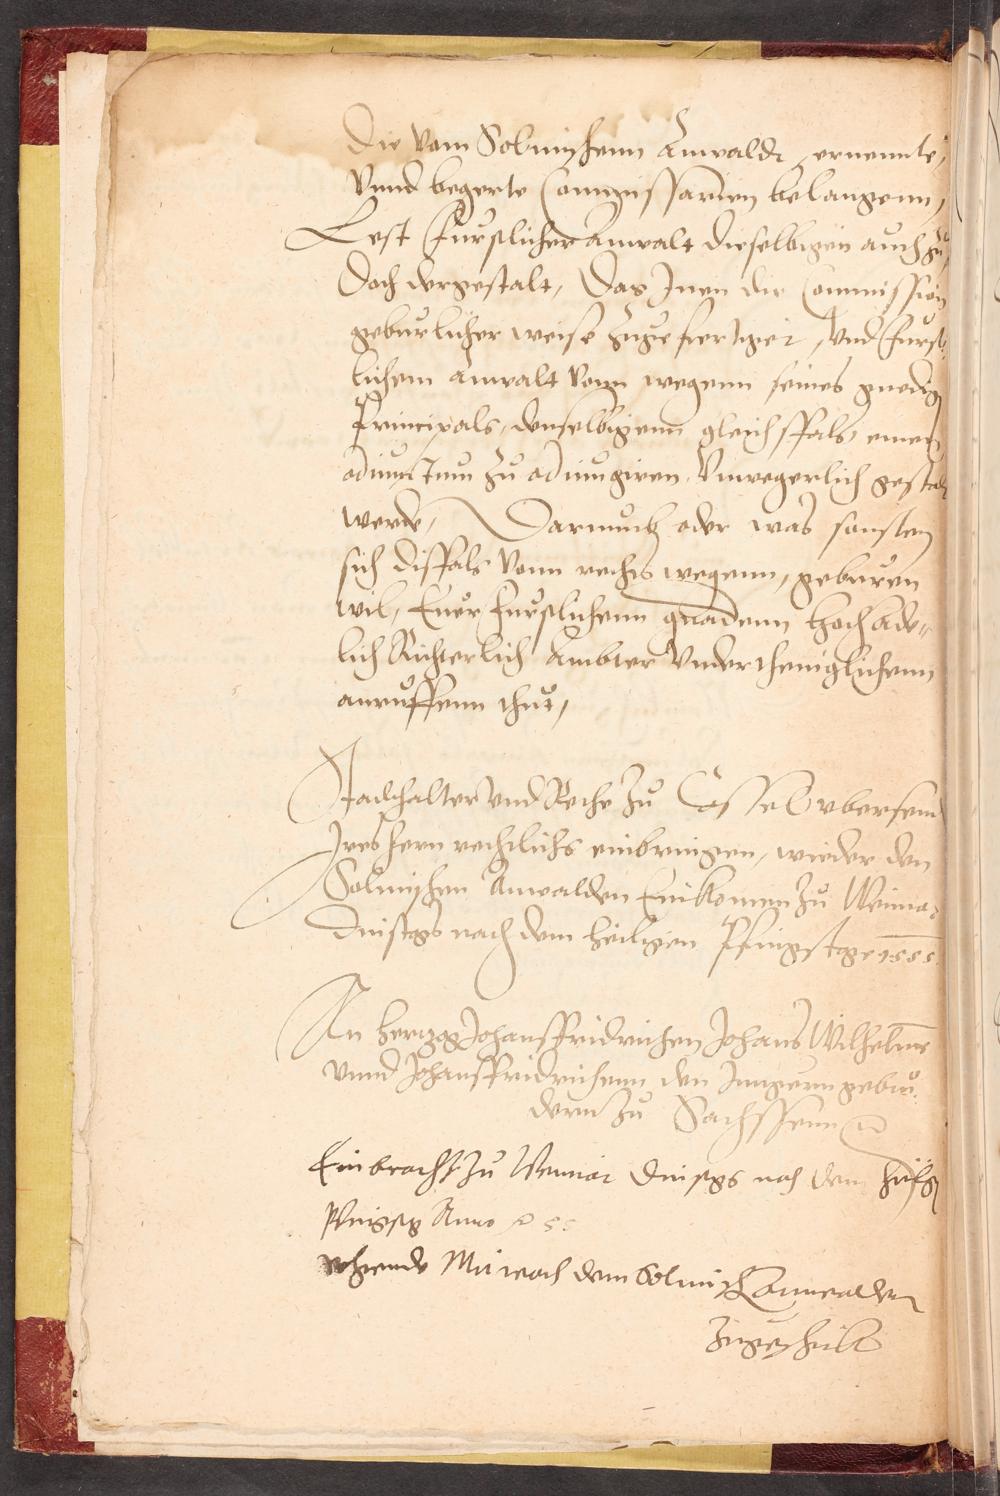 Die vom Solmischenn Anwalde, ernennte,
Vnnd begerte Commissarien belangenn,
Lest furstlicher Anwalt dieselbigen auch zu,
Doch dergestalt, Das Jnen die Commission
geburlicher weise zugefertiget, vnd furst„
lichem Anwalt vonn wegenn seines gnedigen
Principals, denselbigenn gleichsfals einen
adiunctum zu adiungiren vnwegerlich gestadt
werde, Darumb oder was sonsten
sich disfals vonn rechts wegenn, geburen
wil, Euer furstlichenn gnadenn hochade„
lich Richterlich Ambter vndertheniglichenn
anruffenn thut,
Stadthalter vnd Rethe zu Cassel vbersend
Jres hern rechtlichs einbringen, wieder den
Solmischen Anwalden Einkomen zu Weimar
Dinstags nach dem heiligen Pfingstage 1555
An hertzog Johansfridrichen Johans Wilhelme
vnnd Johansfridrichenn den Jungern gebru„
dern zu Sachssenn
Einbracht zu Weimar Dinstags nach dem heiligen
Pfingstag Anno 55
dem Solmisch Anwalden
zugeschickt